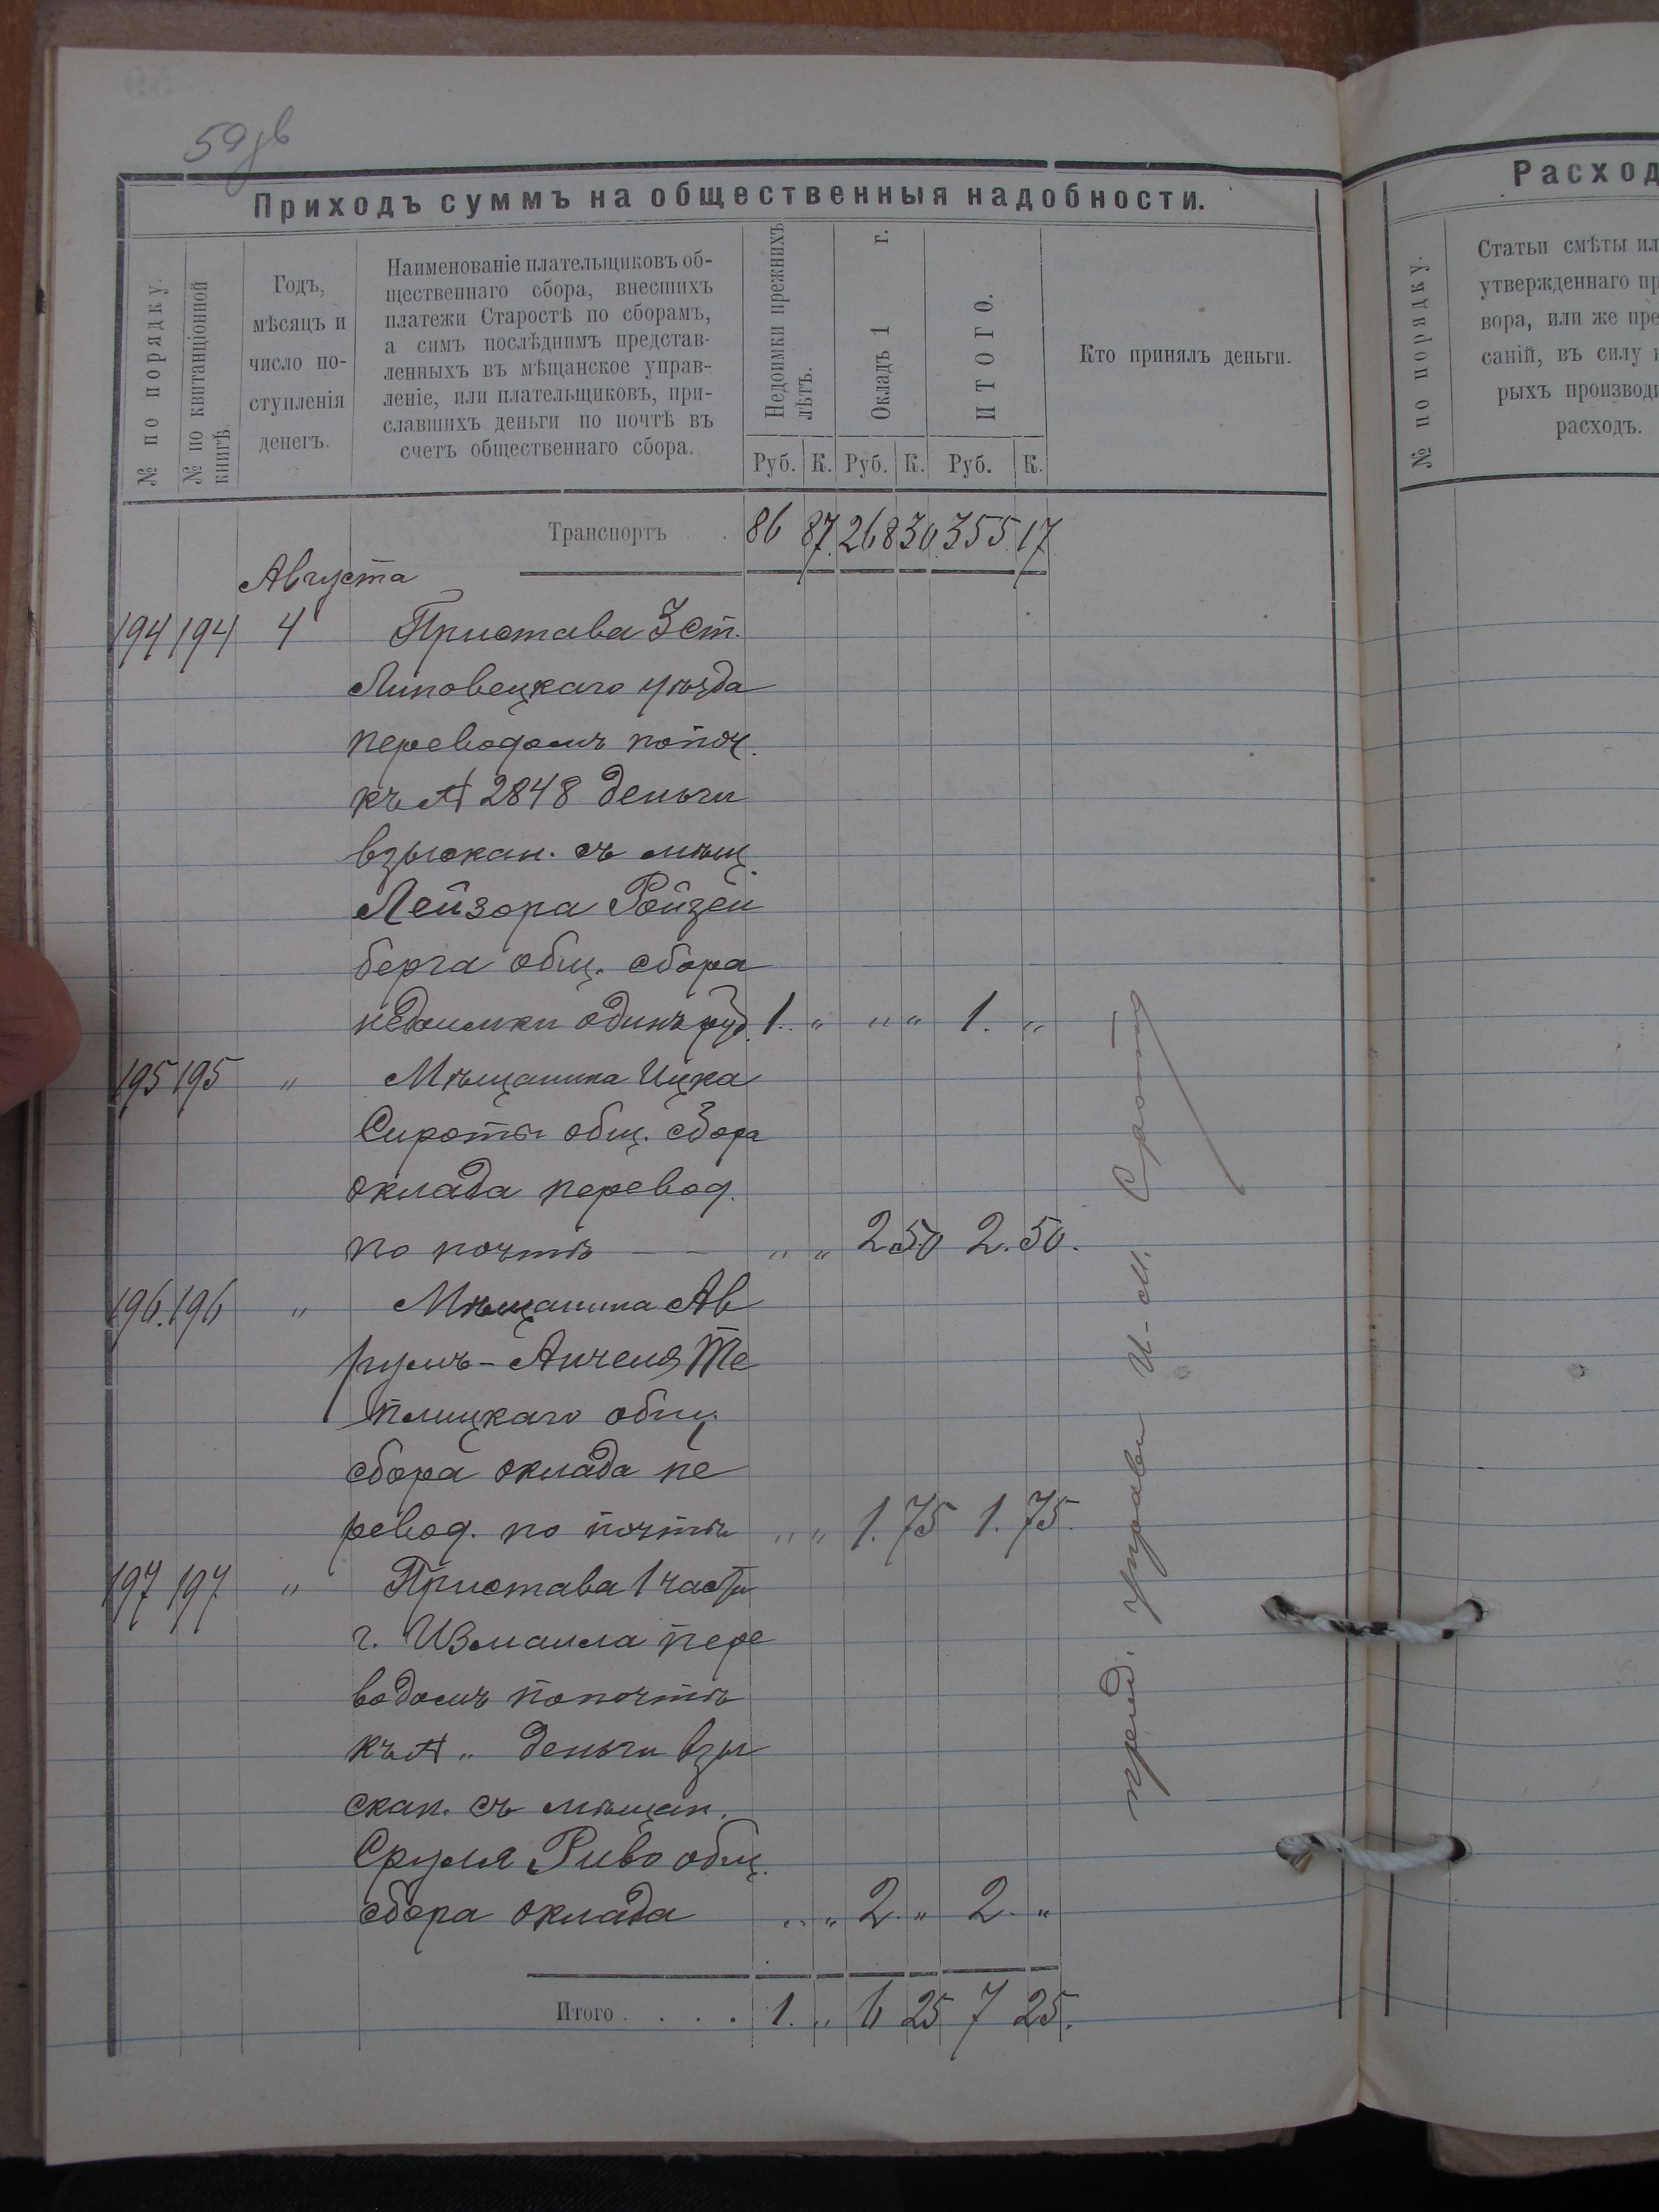 59об
Приходъ суммъ на общественныя надобности.
№ по порядку.
№ по квитанціонной
книгѣ.
Годъ,
мѣсяцъ и
число по-
ступленія
денегъ.
Наименованіе плательщиковъ об-
щественнаго сбора, внесшихъ
платежи Старостѣ по сборамъ,
а симъ послѣднимъ представ-
ленныхъ въ мѣщанское управ-
леніе, или плательщиковъ, при-
славшихъ деньги по почтѣ въ
счетъ общественнаго сбора.
Недоимки прежнихъ
лѣтъ.
Окладъ 1 г.
ИТОГО.
Кто принялъ деньги.
Руб. К. Руб. К. Руб. К.
Транспортъ . . 86 87. 268 30. 355. 17
Августа
194 194 4 Пристава 3 ст.
Липовецкаго уѣзда
переводомъ по поч.
къ № 2848 деньги
взыскан. съ мѣщ.
Лейзора Ройзен
берга общ. сбора
недоимки одинъ руб. 1. „ „ „ 1. „
195 195 „ Мѣщанина Ицка
Сироты общ. сбора
оклада перевод.
по почтѣ — — „ „ 2 50 2. 50.
196. 196 „ Мѣщанина Ав
румъ-Анчеля Те
плицкаго общ.
сбора оклада пе
ревод. по почтѣ „ „ 1. 75 1. 75.
197 197 „ Пристава 1 части
г. Измаила пере
водомъ по почтѣ
къ № „ деньги взы
скан. съ мѣщан.
Сруля Риво общ.
сбора оклада „ „ 2. „ 2. „
Итого . . . . 1. „ 6 25 7 25.
Управы И-М.
Расход
№ по порядку.
Статьи смѣты ил
утвержденнаго пр
вора, или же пре
саній, въ силу к
рыхъ производи
расходъ.